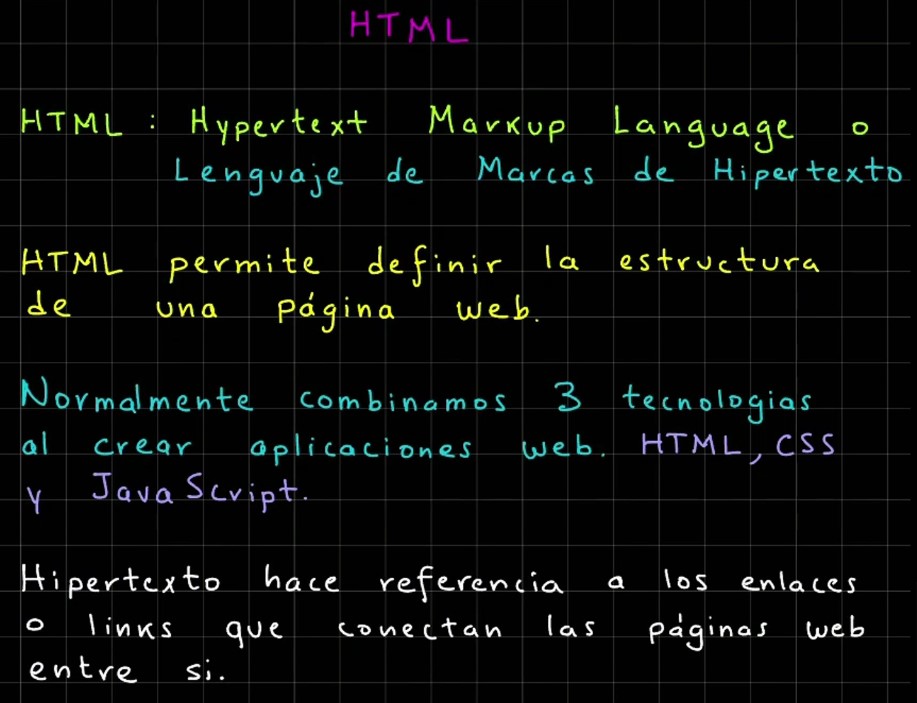 HTML
HTML : Hypertext Markup Language o
Lenguaje de Marcas de Hipertexto
HTML permite definir la estructura
de una página web.
Normalmente combinamos 3 tecnologias
al crear aplicaciones web. HTML, CSS
y JavaScript.
Hipertexto hace referencia a los enlaces
o links que conectan las páginas web
entre si.